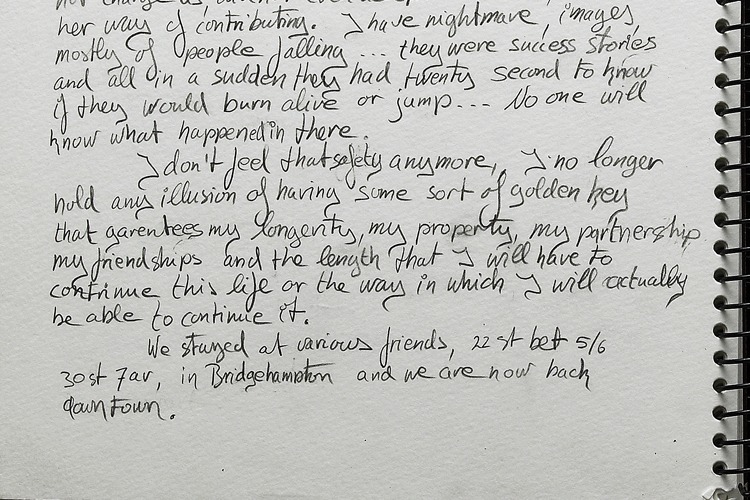 her way of contributing. I have nightmare, images,
mostly of people falling ... they were success stories
and all in a sudden they had twenty second to know
if they would burn alive or jump... No one will
know what happened in there.
I don't feel that safety anymore, I no longer
hold any illusion of having some sort of golden key
that garentees my longevity, my property, my partnership
my friendships and the length that I will have to
continue this life or the way in which I will actually
be able to continue it.
We stayed at various friends, 22 st bet 5/6
30 st 7 av, in Bridgehampton and we are now back
downtown.